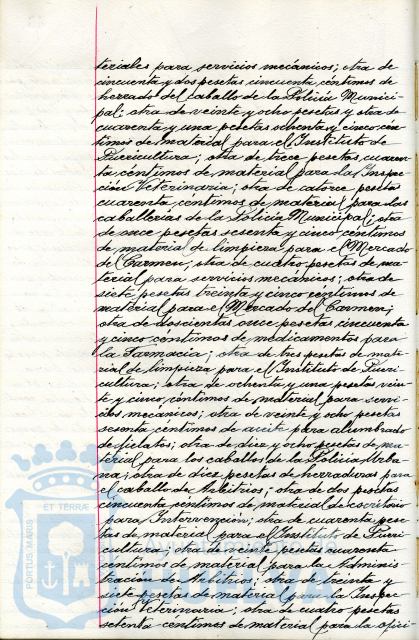 teriales para servicios mecánicos; otra de
cincuenta y dos pesetas cincuenta céntimos de
herrado del caballo de la Policía Munici-
pal; otra de veinte y ocho pesetas y otra de
cuarenta y una pesetas ochenta y cinco cén-
timos de material para el Instituto de
Puericultura; otra de trece pesetas cuaren-
ta céntimos de material para la Inspec-
ción Veterinaria; otra de catorce pesetas
cuarenta céntimos de material para las
caballerías de la Policía Municipal; otra
de once pesetas sesenta y cinco céntimos
de material de limpieza para el Mercado
del Carmen; otra de cuatro pesetas de ma-
terial para servicios mecánicos; otra de
siete pesetas treinta y cinco céntimos de
material para el Mercado del Carmen;
otra de doscientas once pesetas cincuenta
y cinco céntimos de medicamentos para
la Farmacia; otra de tres pesetas de mate-
rial de limpieza para el Instituto de Pueri-
cultura; otra de ochenta y una pesetas vein-
te y cinco céntimos de material para servi-
cios mecánicos; otra de veinte y ocho pesetas
sesenta céntimos de aceite para alumbrado
de fielatos; otra de diez y ocho pesetas de ma-
terial para los caballos de la Policía Urba-
na; otra de diez pesetas de herraduras para
el caballo de Arbitrios; otra de dos pesetas
cincuenta céntimos de material de escritorio
para Intervención; otra de cuarenta pese-
tas de material para el Instituto de Pueri-
cultura; otra de veinte pesetas cuarenta
céntimos de material para la Adminis-
tración de Arbitrios; otra de treinta y
siete pesetas de material para la Inspec-
ción Veterinaria; otra de cuatro pesetas
setenta céntimos de material para la ofici-
PORTUS MARIS
ET TERRÆ